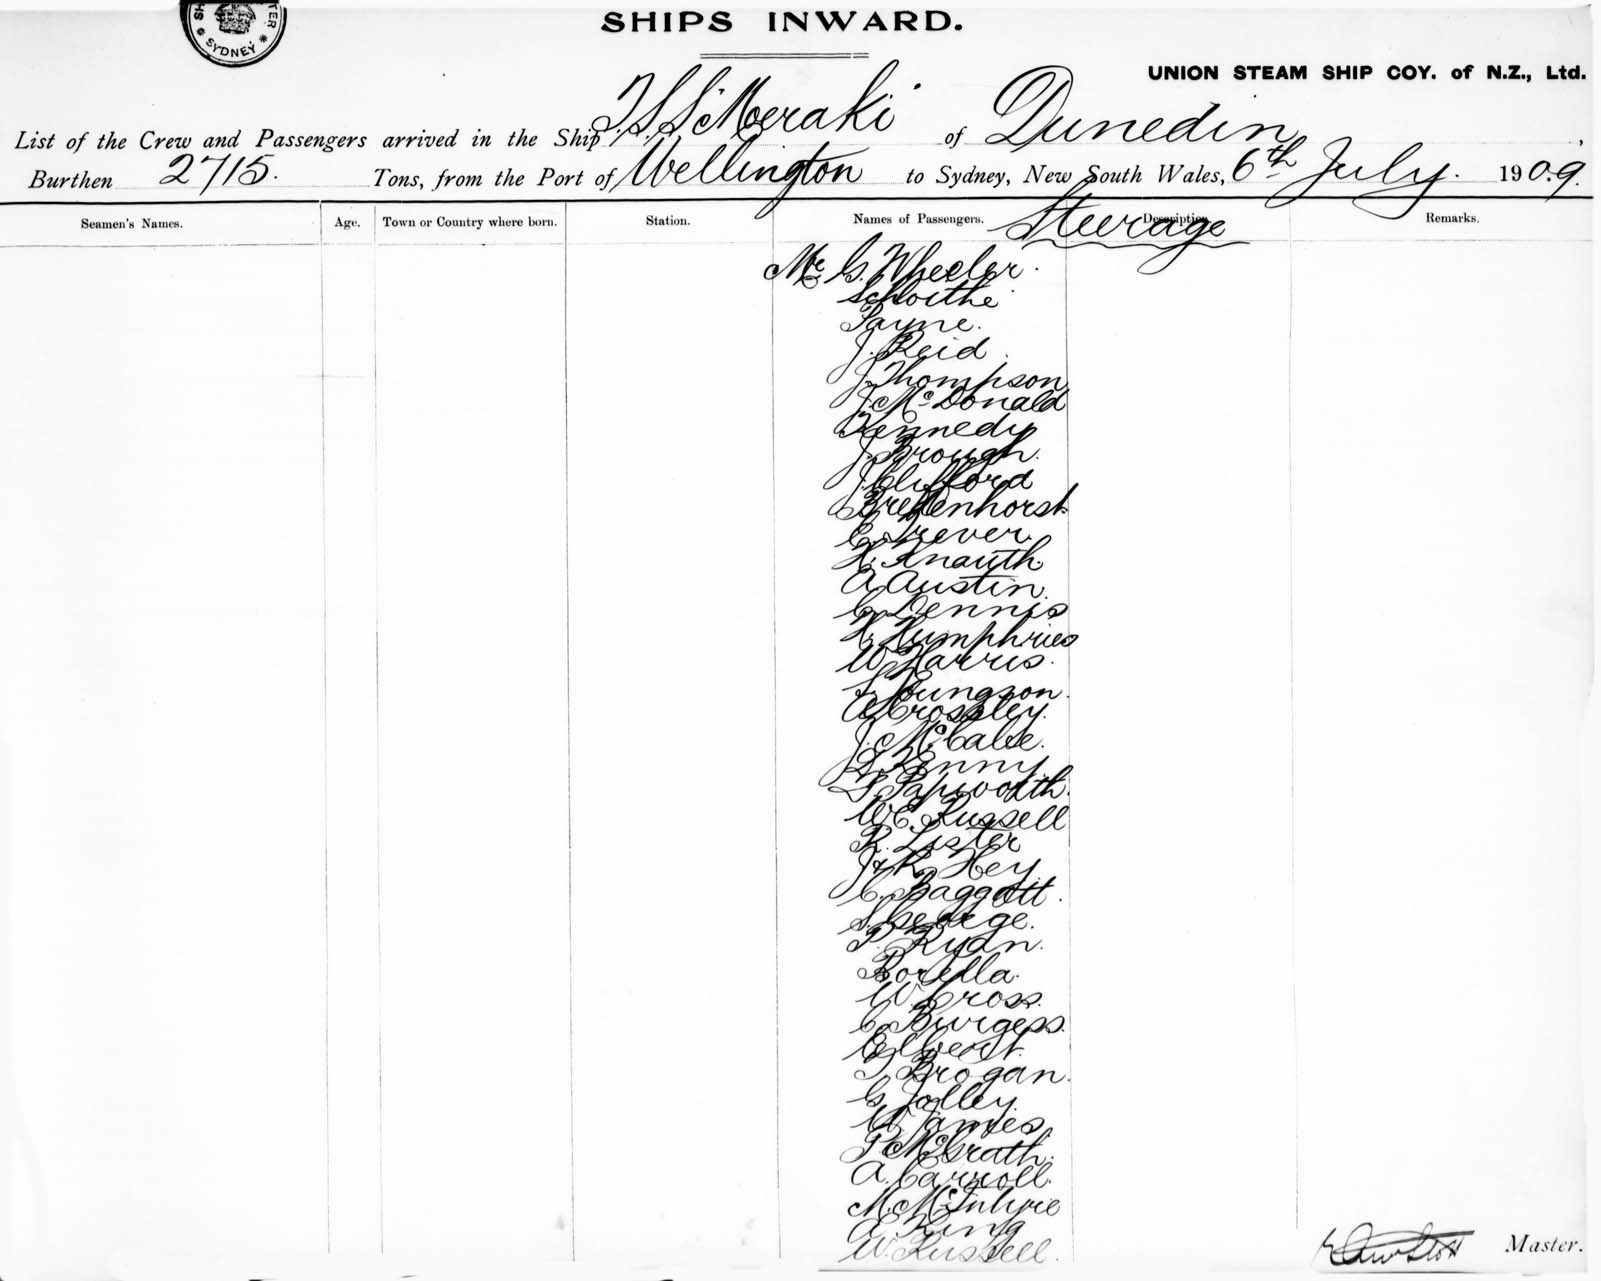 SYDNEY
SHIPS INWARD.
UNION STEAM SHIP COY. of N.Z., Ltd.
List of the Crew and Passengers arrived in the Ship T.S.S. Moeraki of Dunedin,
Burthen 2715. Tons, from the Port of Wellington to Sydney, New South Wales, 6th July. 1909.
Seamen's Names. Age. Town or Country where born. Station. Names of Passengers. Steerage Description Remarks.
Mr G. Wheeler.
Payne.
J. Reid
J. Thompson
J. McDonald
Kennedy
J. Brough.
J Clifford
C. Trever.
H. Knauth.
A Austin.
C. Dennis
H. Humphries
W Harris.
Youngson.
A Crossley.
J. McCabe.
Kenny.
Papworth.
W E. Russell
R. Lister
J & R. Hey
C. Baggott.
S George.
P. Ryan.
Borella.
W. Cross.
C. Burgess.
T Brogan.
G Jolley.
W. James.
P McGrath.
A. Carroll.
M. McIntyre
A King
W. Russell.
Master.